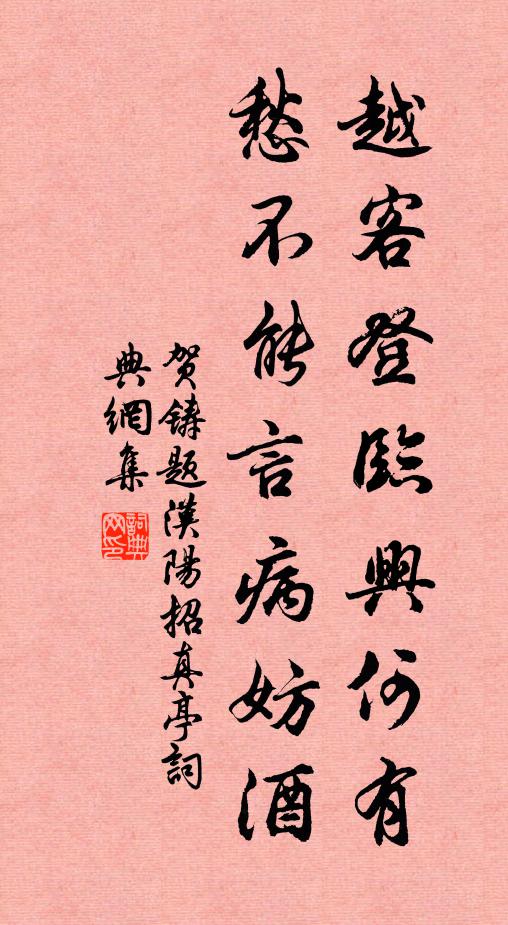 越客登臨興何有
愁不能言病妨酒
贺鑄题漢陽招真亭詞
典網集
詞典
网印